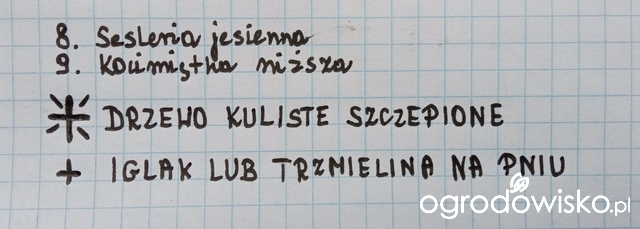 8. Sesleria jesienna
9. Kocimiętka niższa
DRZEWO KULISTE SZCZEPIONE
+ IGLAK LUB TRZMIELINA NA PNIU
ogrodowisko.pl